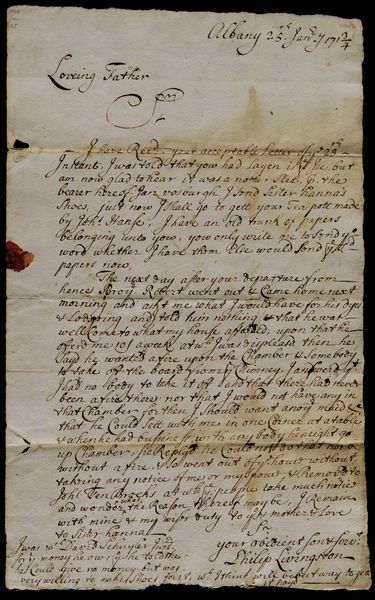 Albany 25th Janry 171¾
Loveing Father
Sr
I have Recd your acceptable letter of ye 19th
Instant, I was told that you had layen but
am now glad to hear it was a note. Rec. by the
bearer hereof Jan vosburgh I send Sister hanna's
Shoes, just now I shall go to gett your Tea pott made
by Johs Hanse, I have an old trunk of papers
belonging unto you, you only write me to send yo
word whether I have them Else would send ye sd
papers now,
The next day after your departure from
hence Bror Robert went out & Came home next
morning and askt me what I would have for his dyet
& Lodgeing and I told him nothing & that he was
wellcome to what my house afforded, upon that he
offerd me 10/ a week at wh I was displeased then he
Says he wanted a fire upon the Chamber & Somebody
to take off the board from ye Chimney, I answerd yt
I had no body to take it off and that there had never
been a fire there nor that I would not have any in
that Chamber for then I should want among
that he Could sett with me in one Corner at a table
& when he had business with any body he might go
up Chamber, he Reply'd he Could not do that
without a fire & so went out of ye house without
takeing any notice of me or my spouse & Removed to
Johs Ten Broeks at wh ye people take much notice
and wonder what the Reason thereof may be, I Remain
with mine & my wifes duty to yo mother & love
to Sister hanna
Sr
your obedient son & servt
Philip Livingston
I was wt David Schuyler
ye money he ow's ye
he could give no money but was
very willing to make Shoes for it, wh I think will be best way to gett